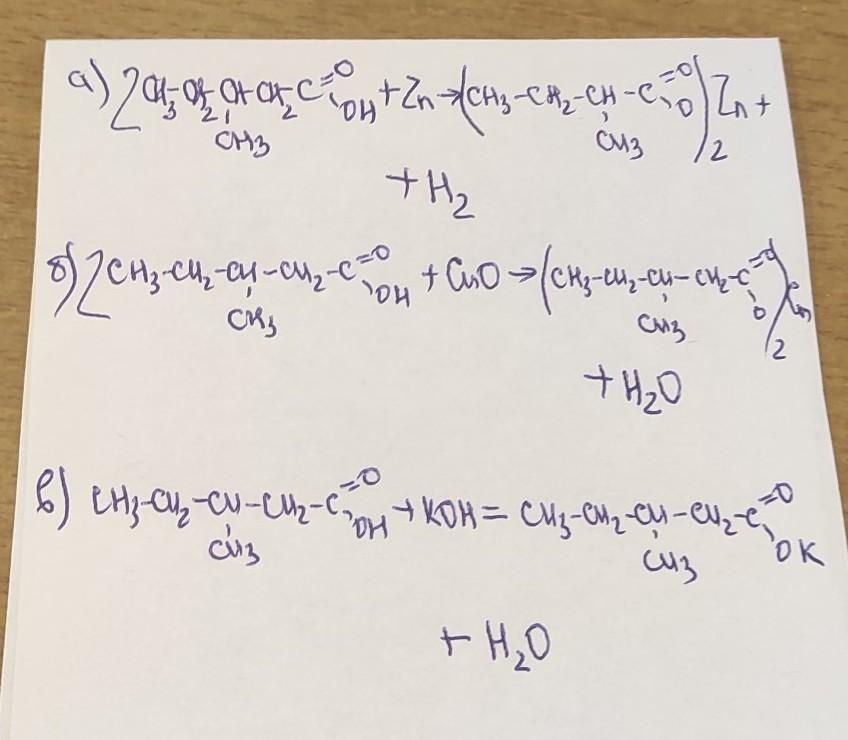 а) 2CH3-CH2-CH-CH2-C=O OH + Zn → (CH3-CH2-CH-C=O O)2 Zn +
CH3 CH3
+ H2
б) 2CH3-CH2-CH-CH2-C=O OH + CuO → (CH3-CH2-CH-CH2-C=O O)2
CH3 CH3
+ H2O
в) CH3-CH2-CH-CH2-C=O OH + KOH = CH3-CH2-CH-CH2-C=O OK
CH3 CH3
+ H2O